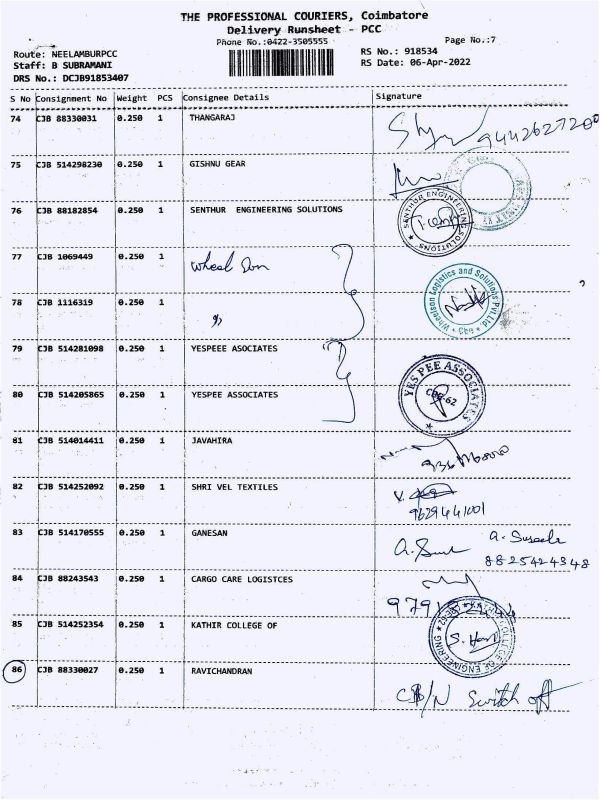 THE PROFESSIONAL COURIERS, Coimbatore
Delivery Runsheet - PCC
Phone No.:0422-3505555 Page No.:7
Route: NEELAMBURPCC RS No.: 918534
Staff: B SUBRAMANI RS Date: 06-Apr-2022
DRS No.: DCJB91853407
S No Consignment No Weight PCS Consignee Details Signature
74 CJB 88330031 0.250 1 THANGARAJ
9442627200
75 CJB 514298230 0.250 1 GISHNU GEAR
76 CJB 88182854 0.250 1 SENTHUR ENGINEERING SOLUTIONS
SENTHUR ENGINEERING SOLUTIONS
77 CJB 1069449 0.250 1 Wheel Son
78 CJB 1116319 0.250 1
Wheelson Logistics and Solutions Pvt Ltd
79 CJB 514281098 0.250 1 YESPEEE ASOCIATES
YES PEE ASSOCIATES
80 CJB 514205865 0.250 1 YESPEE ASSOCIATES
81 CJB 514014411 0.250 1 JAVAHIRA
82 CJB 514252092 0.250 1 SHRI VEL TEXTILES
9629441001
83 CJB 514170555 0.250 1 GANESAN
a. Suseela
8825424348
84 CJB 88243543 0.250 1 CARGO CARE LOGISTCES
85 CJB 514252354 0.250 1 KATHIR COLLEGE OF
KATHIR COLLEGE OF ENGINEERING
86 CJB 88330027 0.250 1 RAVICHANDRAN
Switch off